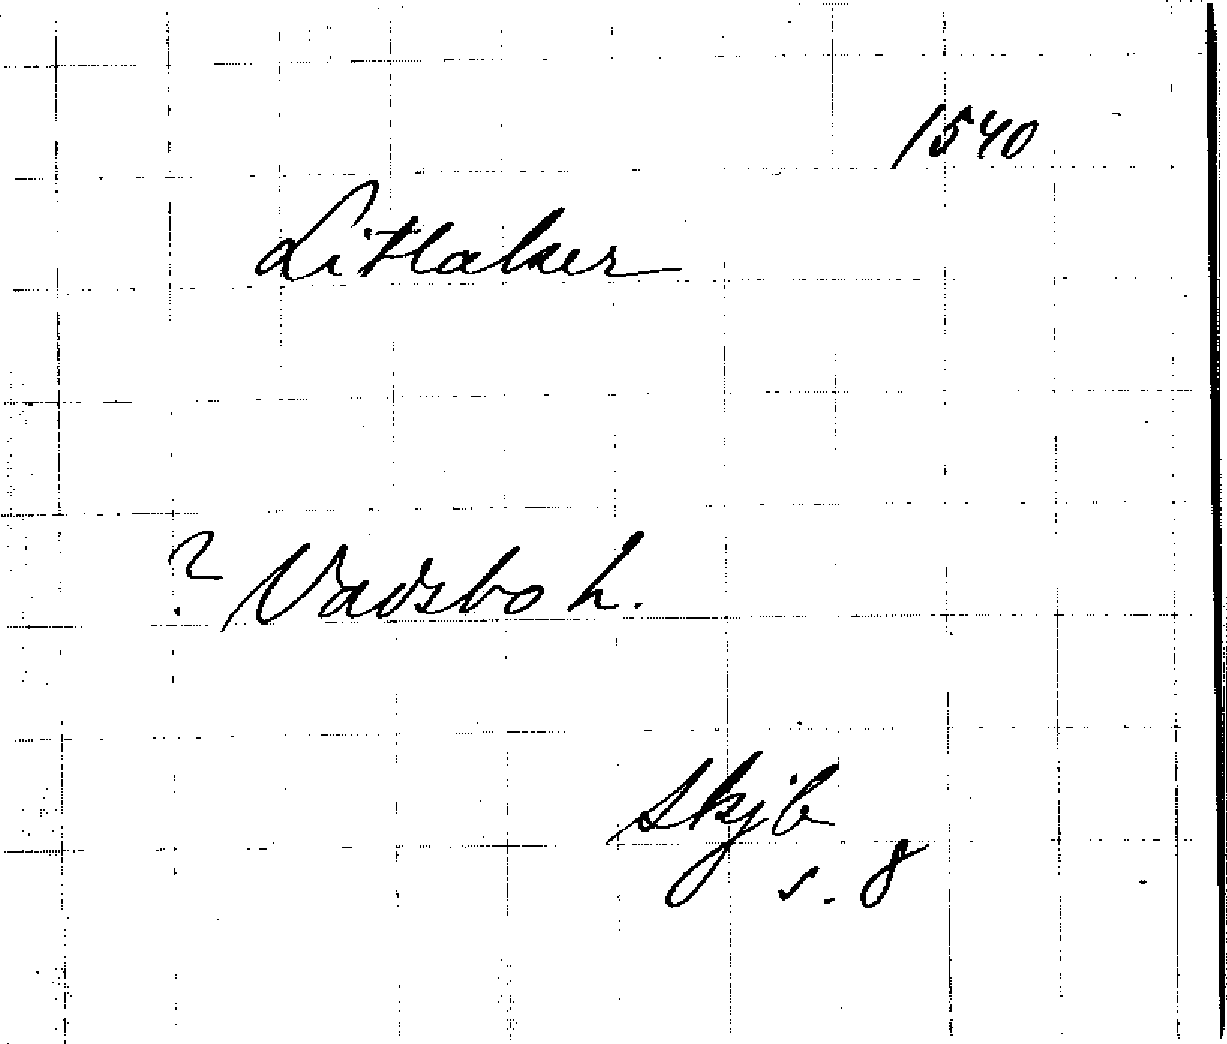 1540
Litlaker
? Vadsbo h.
Skjb
s. 8